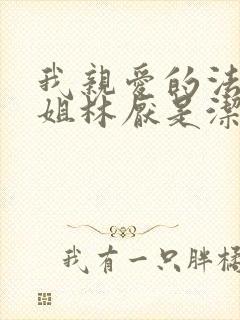 我親愛的法
姐林厭是潔
我有一只胖橘